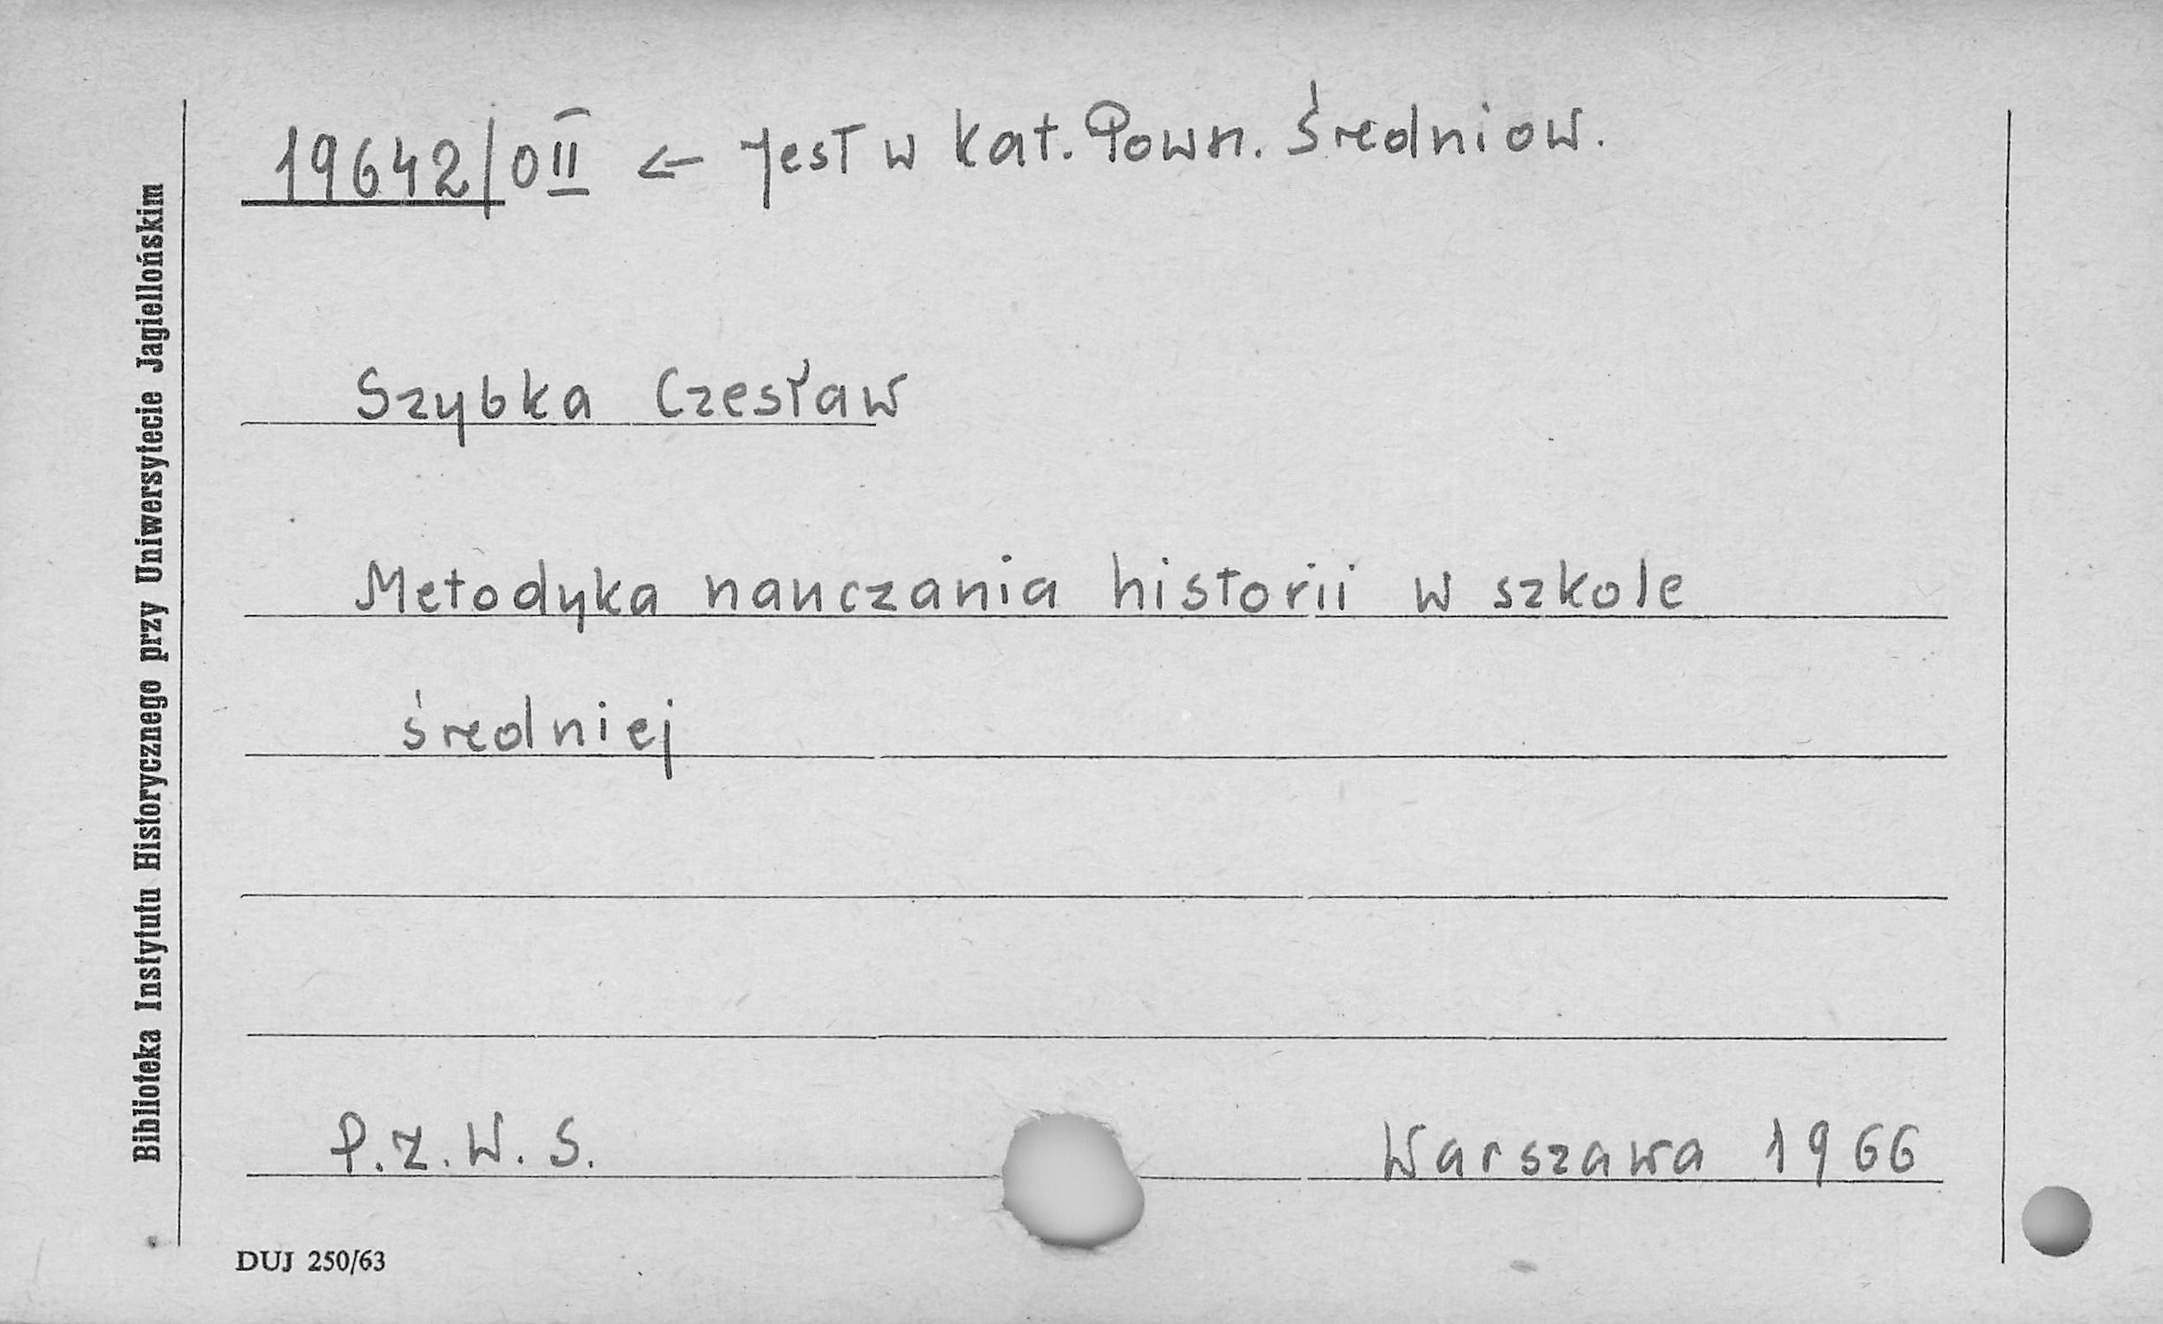 19642/0II ← Jest w kat. Pown. Średniow.
Szybka Czesław
Metodyka nauczania historii w szkole
średniej
P.Z.W.S. Warszawa 1966
DUJ 250/63
Biblioteka Instytutu Historycznego przy Uniwersytecie Jagiellońskim